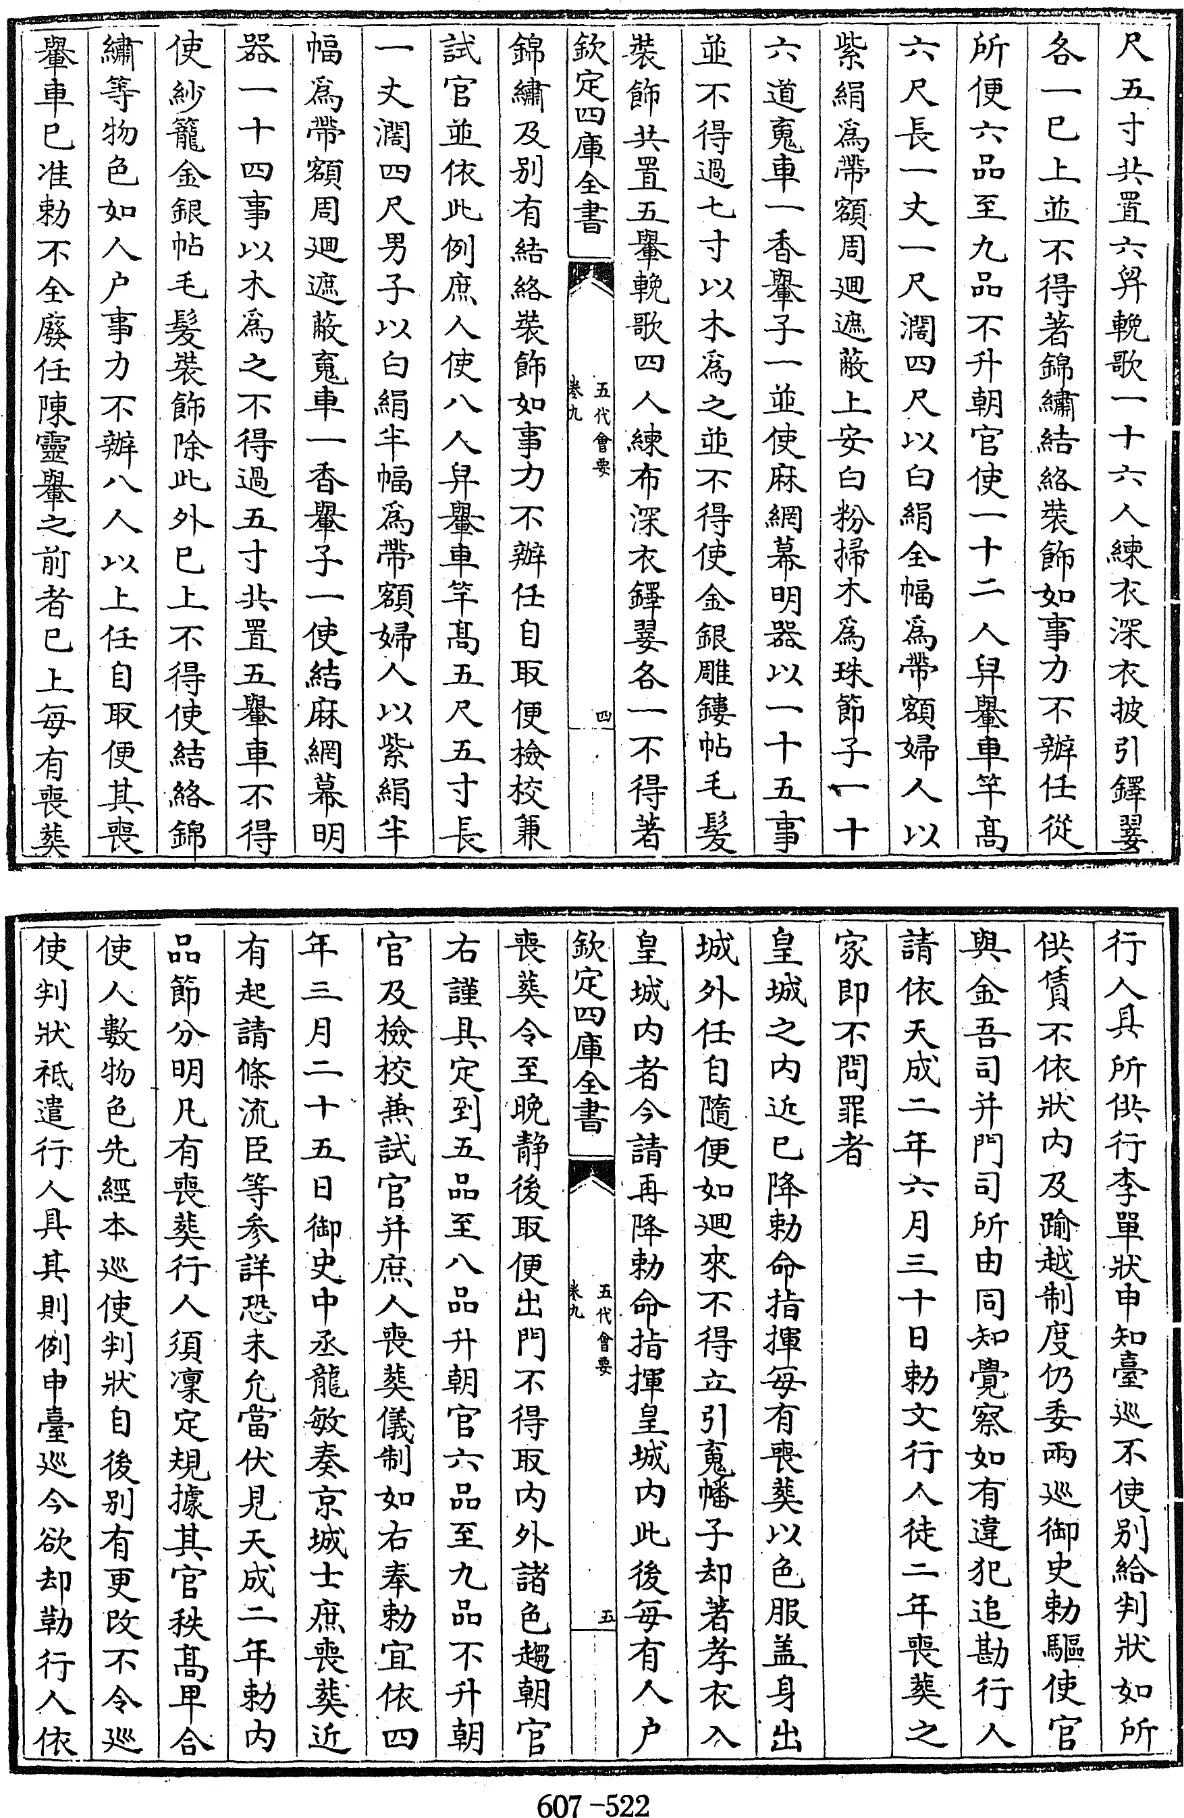 尺五寸共置六舁輓歌一十六人練衣深衣披引鐸翣
各一已上並不得著錦繡結絡裝飾如事力不辦任從
所便六品至九品不升朝官使一十二人舁轝車竿高
六尺長一丈一尺濶四尺以白絹全幅為帶額婦人以
紫絹為帶額周廻遮蔽上安白粉掃木為珠節子一十
六道䰟車一香轝子一並使麻網幕明器以一十五事
並不得過七寸以木為之並不得使金銀雕鏤帖毛髮
裝飾共置五轝輓歌四人練布深衣鐸翣各一不得著
欽定四庫全書
五代會要
卷九
四
錦繡及别有結絡裝飾如事力不辦任自取便檢校兼
試官並依此例庶人使八人舁轝車竿高五尺五寸長
一丈濶四尺男子以白絹半幅為帶額婦人以紫絹半
幅為帶額周廻遮蔽䰟車一香轝子一使結麻網幕明
器一十四事以木為之不得過五寸共置五轝車不得
使紗籠金銀帖毛髮裝飾除此外已上不得使結絡錦
繡等物色如人户事力不辦八人以上任自取便其喪
轝車已准勅不全廢任陳靈轝之前者已上每有喪葬
行人具所供行李單狀申知臺巡不使别給判狀如所
供賃不依狀内及踰越制度仍委兩巡御史勅驅使官
與金吾司并門司所由同知覺察如有違犯追勘行人
請依天成二年六月三十日勅文行人徒二年喪葬之
家即不問罪者
皇城之内近已降勅命指揮每有喪葬以色服盖身出
城外任自隨便如廻來不得立引䰟幡子却著孝衣入
皇城内者今請再降勅命指揮皇城内此後每有人户
欽定四庫全書
五代會要
卷九
五
喪葬令至晚静後取便出門不得取内外諸色趨朝官
右謹具定到五品至八品升朝官六品至九品不升朝
官及檢校兼試官并庶人喪葬儀制如右奉勅宜依四
年三月二十五日御史中丞龍敏奏京城士庶喪葬近
有起請條流臣等参詳恐未允當伏見天成二年勅内
品節分明凡有喪葬行人須凛定規據其官秩高甲合
使人數物色先經本巡使判狀自後别有更改不令巡
使判狀祗遣行人具其則例申臺巡今欲却勒行人依
607-522